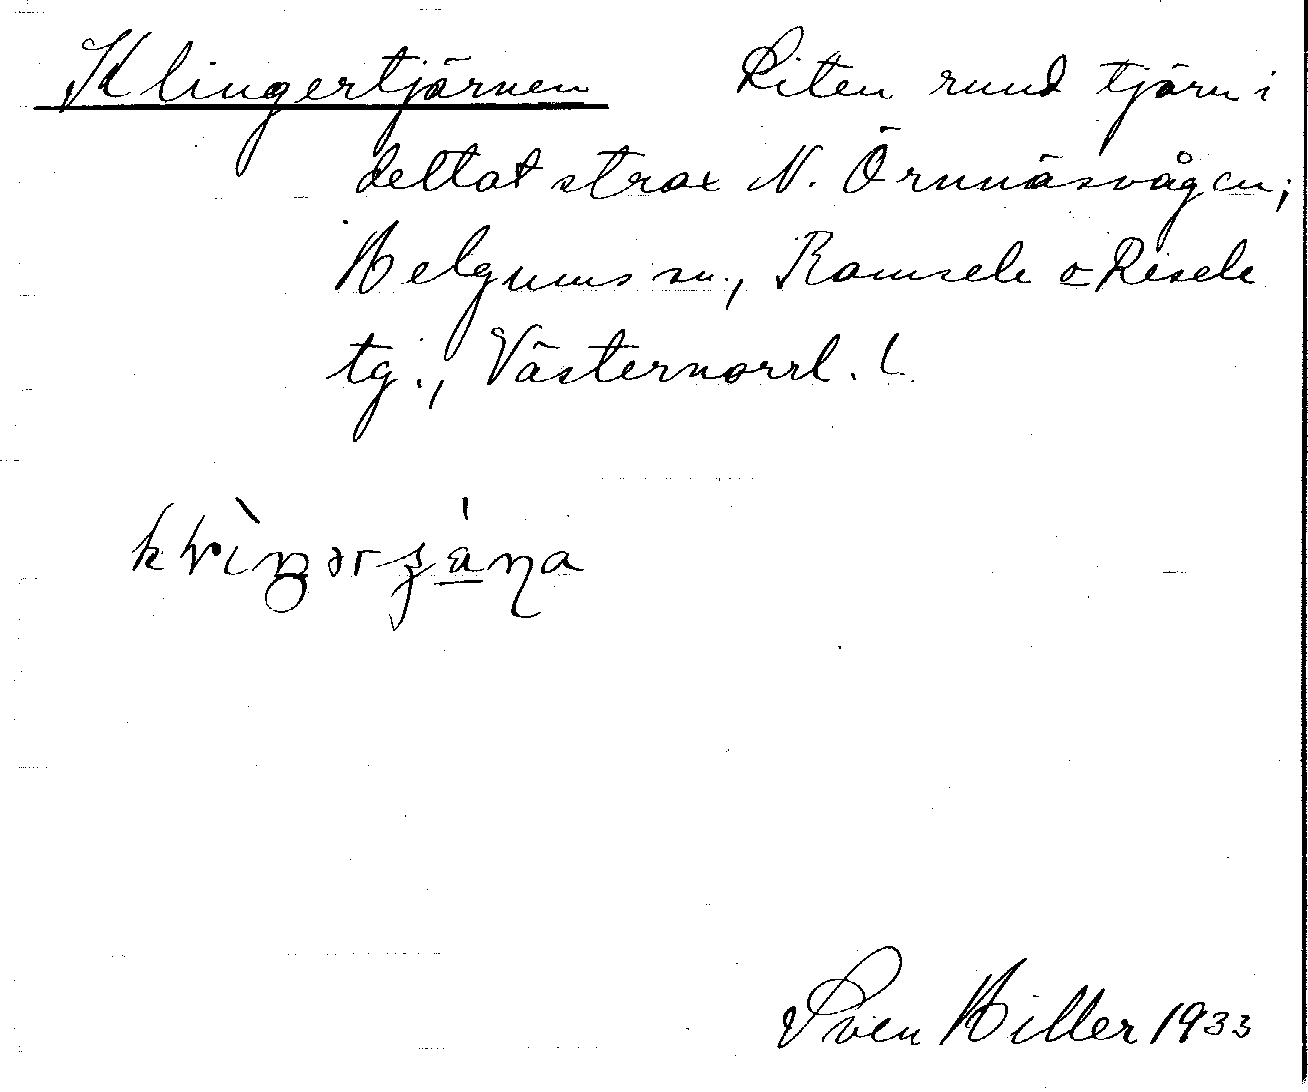 Klingertjärnen Liten rund tjärn i
deltat strax N. Örnnäsvågen;
Helgums sn., Ramsele o Resele
tg., Västernorrl. l.
Sven Hiller 1933